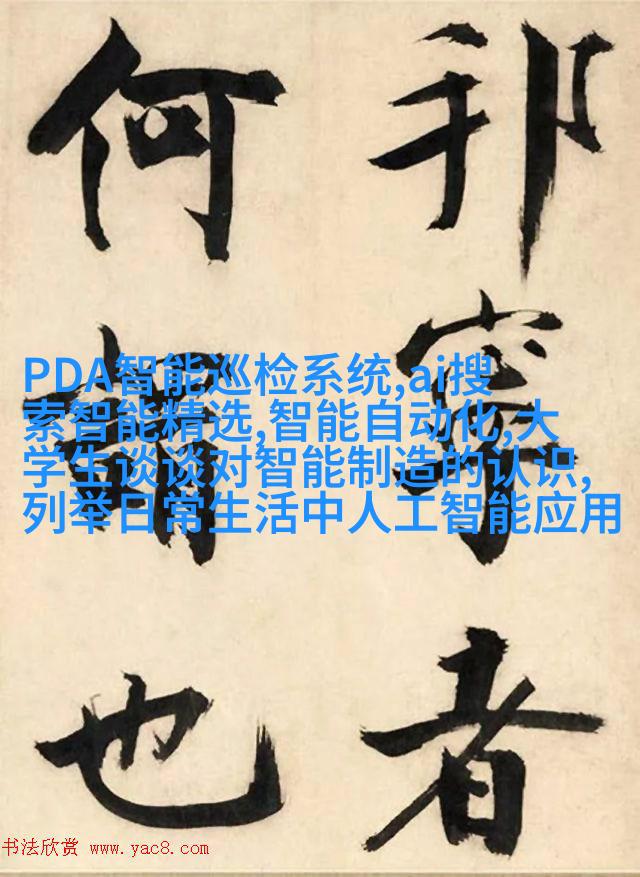 邦寧者
何謂也
PDA智能巡检系统,ai搜
索智能精选,智能自动化,大
学生谈谈对智能制造的认识,
列举日常生活中人工智能应用
书法欣赏 www.yac8.com